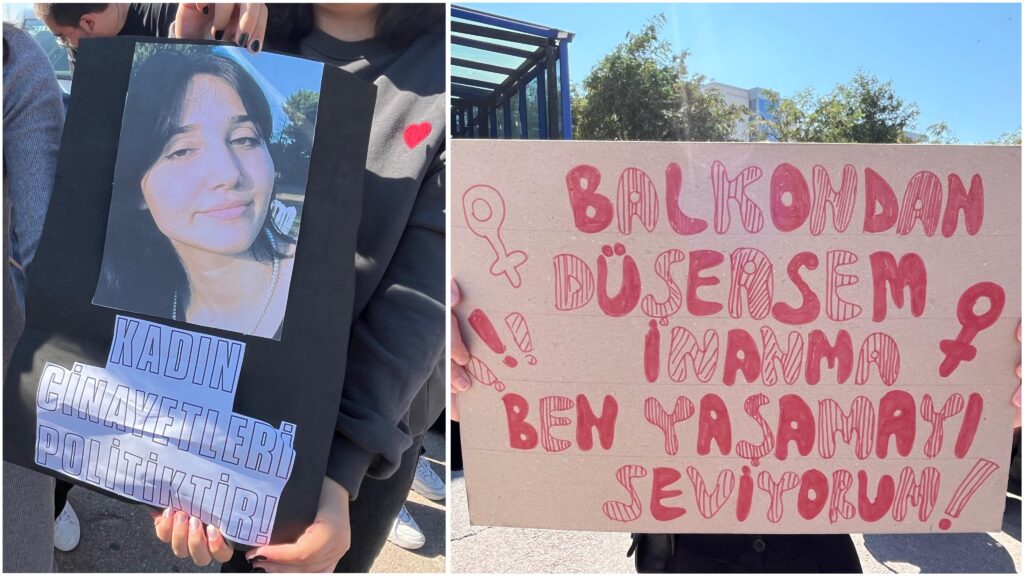 KADIN
CİNAYETLERİ
POLİTİKTİR!
BALKONDAN
DÜŞERSEM
İNANMA
BEN YAŞAMAYI
SEVİYORUM!